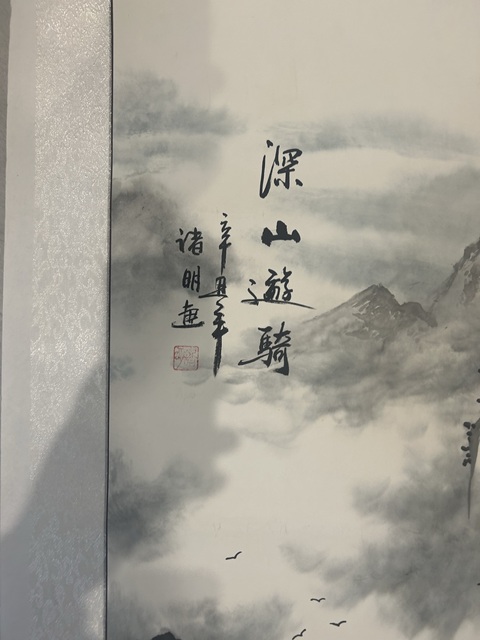 深山遊騎
辛丑年
諸明畫